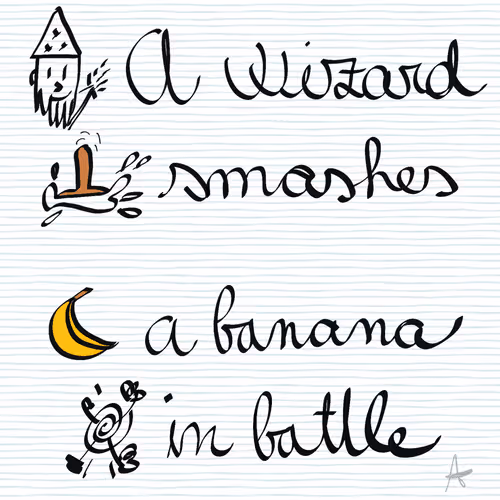 A Wizard
smashes
a banana
in battle
A